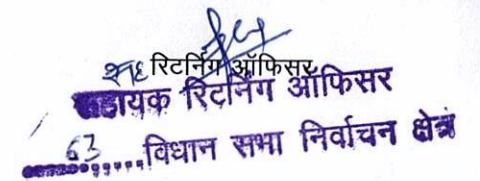 सह रिटर्निंग ऑफिसर
सहायक रिटर्निंग ऑफिसर
63 विधान सभा निर्वाचन क्षेत्र